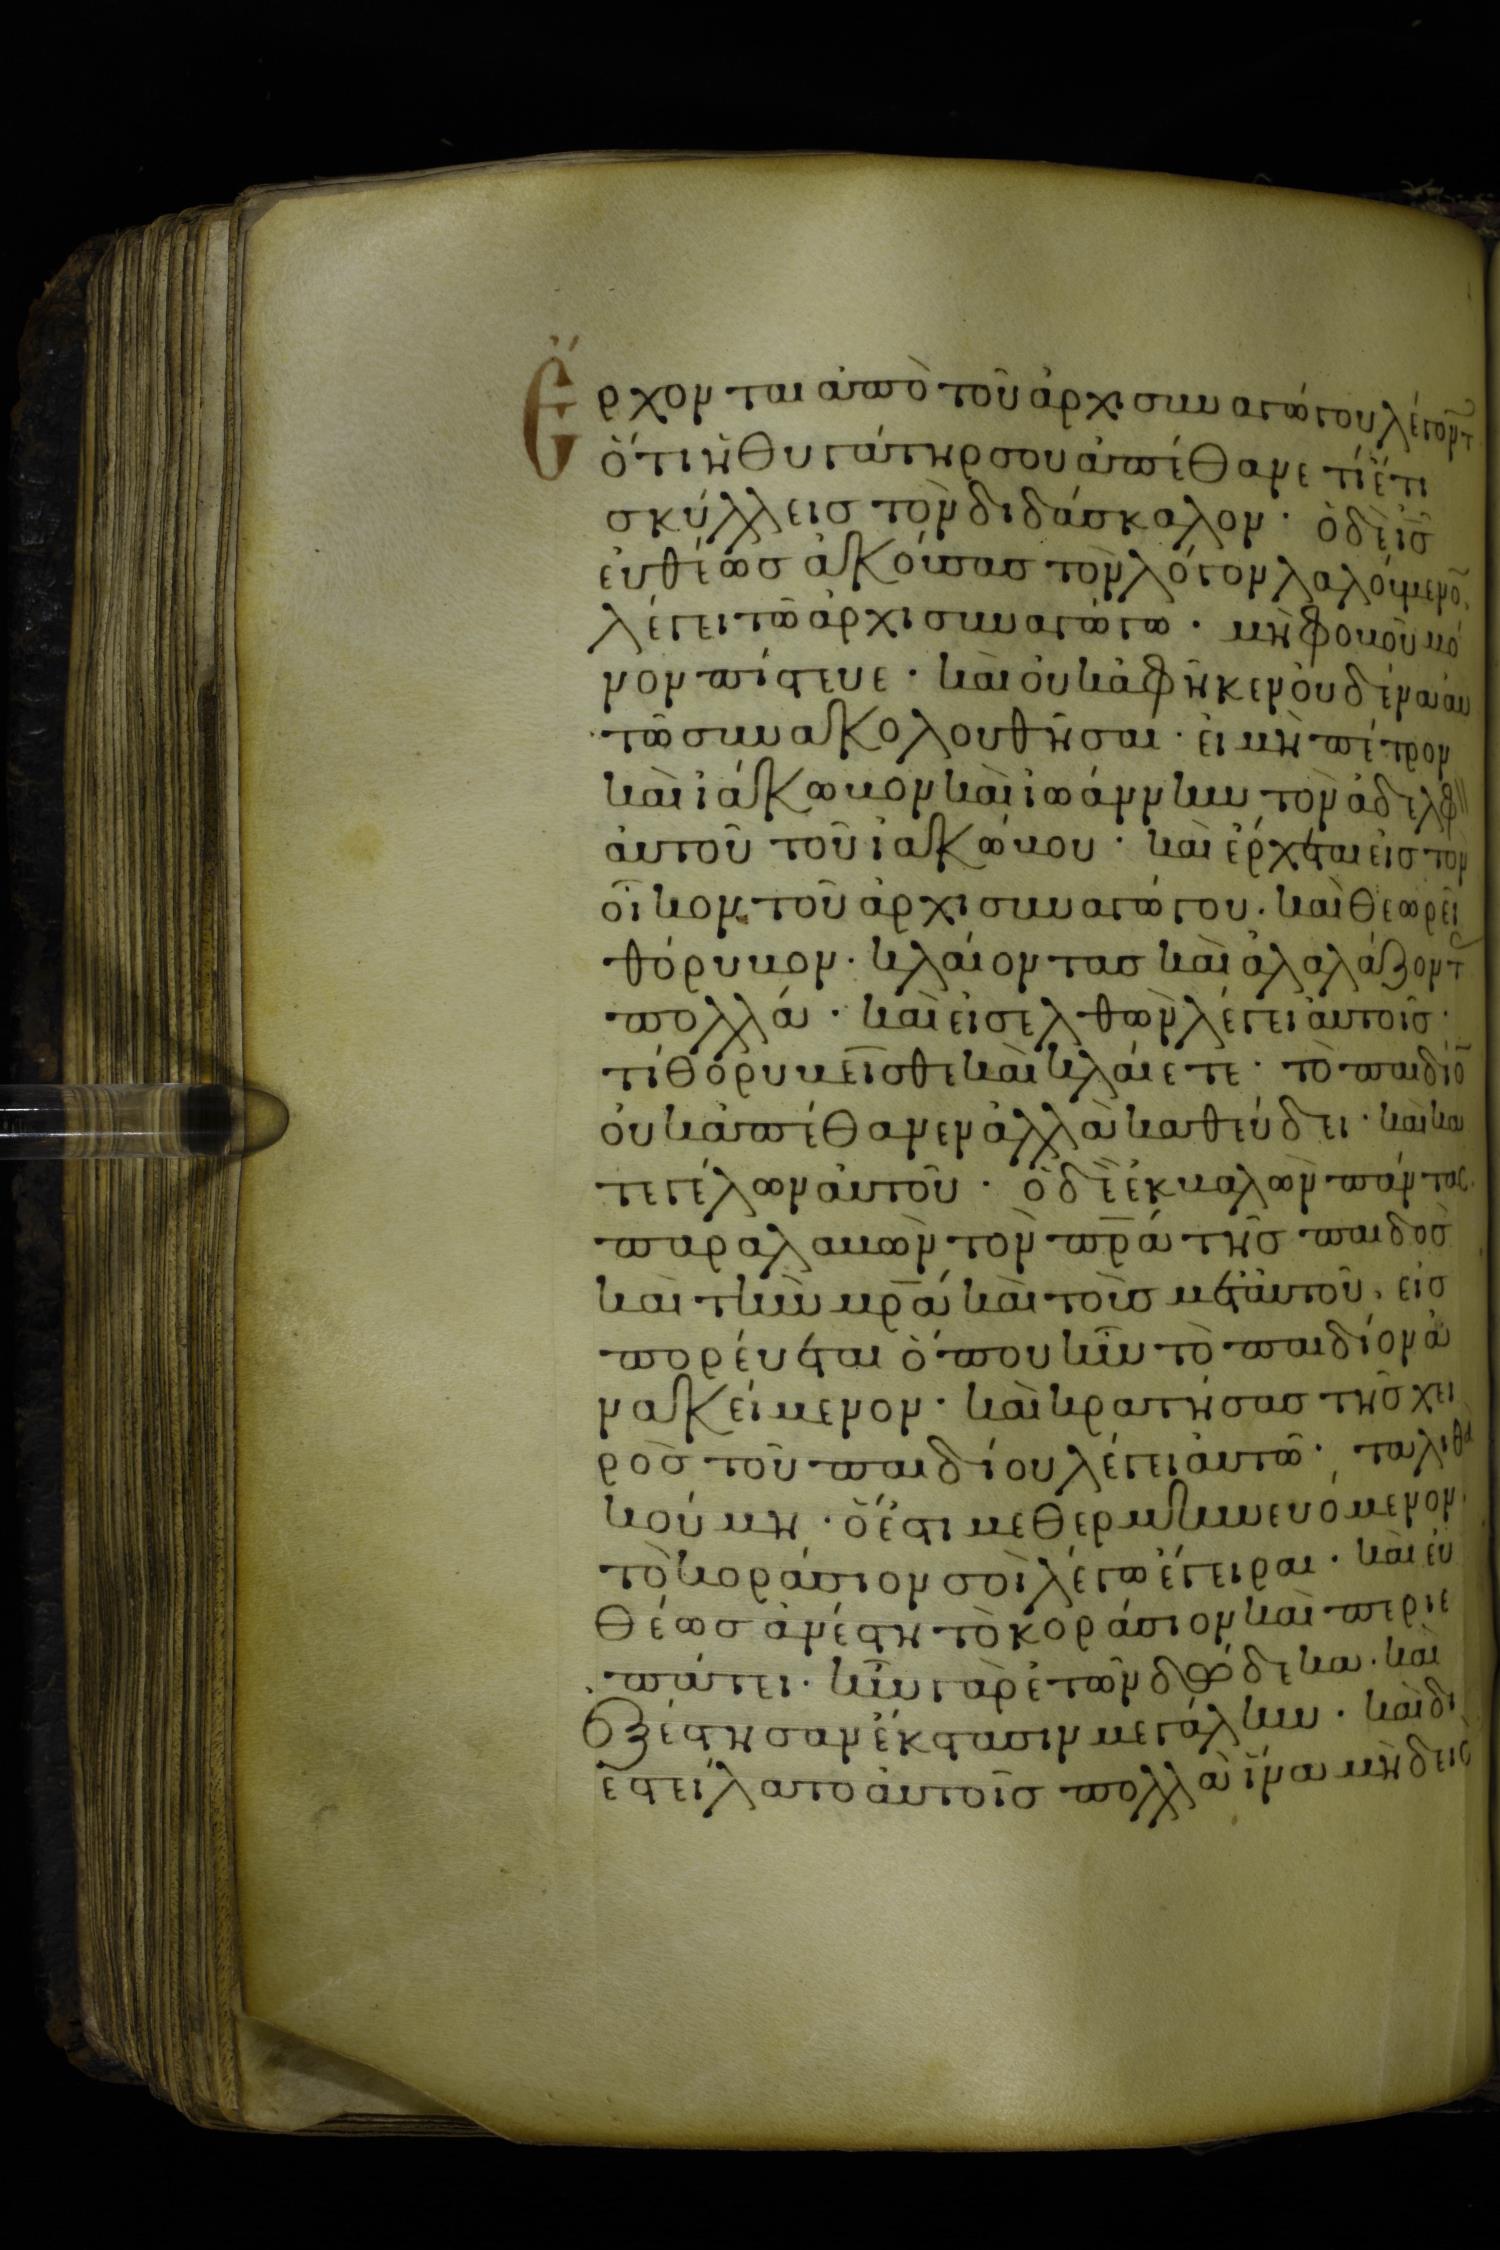 Ἔρχονται ἀπὸ τοῦ ἀρχισυναγώγου λέγοντ
ὅτι ἡ θυγάτηρ σου ἀπέθανε τί ἔτι
σκύλλεις τὸν διδάσκαλον· ὁ δὲ ι̅ς̅
εὐθέως ἀκούσας τὸν λόγον λαλούμενο̅
λέγει τῶ ἀρχισυναγώγω· μὴ φοβοῦ μό
νον πίστευε· καὶ οὐκ ἀφῆκεν οὐδένα αὐ
τῶ συνακολουθῆσαι· εἰ μὴ πέτρον
καὶ ἰάκωβον καὶ ἰωάννην τὸν ἀδελφ
αὐτοῦ τοῦ ἰακώβου· καὶ ἔρχεται εἰς τὸν
οἶκον τοῦ ἀρχισυναγώγου· καὶ θεωρεῖ
θόρυβον· κλαίοντας καὶ ἀλαλάζοντ
πολλά· καὶ εἰσελθὼν λέγει αὐτοῖς·
τί θορυβεῖσθε καὶ κλαίετε· τὸ παιδίο̅
οὐκ ἀπέθανεν ἀλλὰ καθεύδει· καὶ κα
τεγέλων αὐτοῦ· ὁ δὲ ἐκβαλὼν πάντας
παραλαβὼν τὸν π̅ρ̅α̅ τῆς παιδὸς
καὶ τὴν μ̅ρ̅α̅ καὶ τοὺς μετ' αὐτοῦ· εἰσ
πορεύεται ὅπου ἦν τὸ παιδίον ἀ
νακείμενον· καὶ κρατήσας τῆς χει
ρὸς τοῦ παιδίου λέγει αὐτῶ· ταλιθὰ
κούμη· ὅ ἐστι μεθερμηνευόμενον·
τὸ κοράσιον σοὶ λέγω ἔγειραι· καὶ εὐ
θέως ἀνέστη τὸ κοράσιον καὶ περιε
πάτει· ἦν γὰρ ἐτῶν δώδεκα· καὶ
ἐξέστησαν ἐκστάσει μεγάλη· καὶ δι
εστείλατο αὐτοῖς πολλὰ ἵνα μηδεὶς